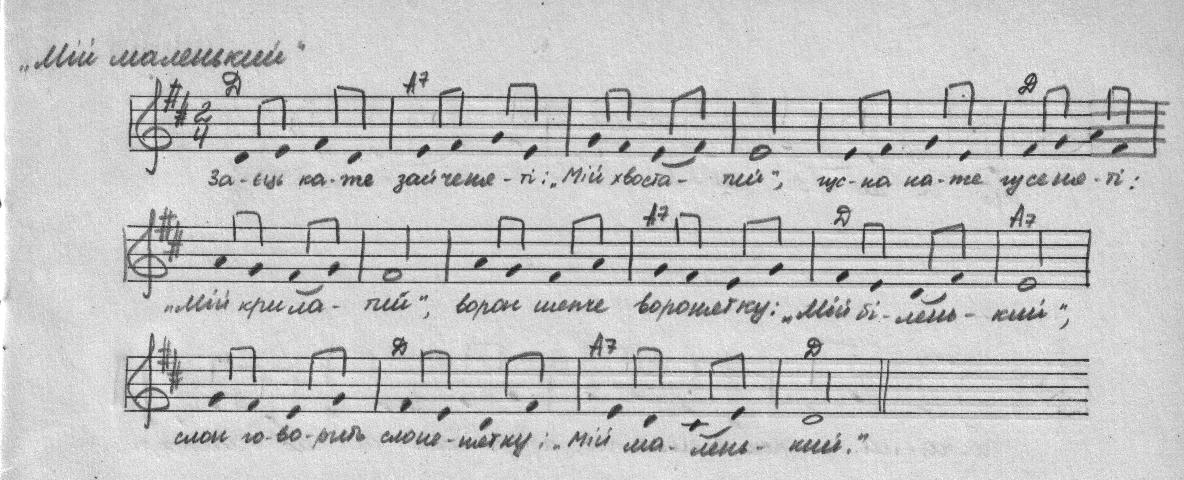 „Мій маленький"
D A7 D
2
4
За-єць ка-же зайченя-ті: „Мій хвоста- тий", гус-ка ка-же гусеня-ті:
A7 D A7
„Мій крила- тий", ворон шепче воронятку: „Мій бі-лень- кий",
D A7 D
слон го-во-рить слоне-нятку: „Мій ма-лень- кий."